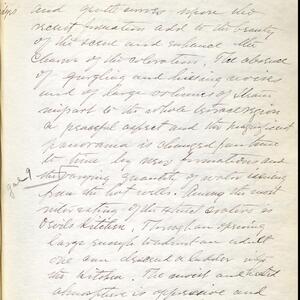 and upon the
recent formation add to the beauty
of the scene and enhance the
charm of the coloration. The absence
of gurgling and hissing noises
and of large volumes of steam
impart to the whole terrace region
a peaceful aspect and the magnificent
panorama is changed from time
to time by new formations and
the varying quantity of water issuing
from the hot wells. Among the most
interesting of the extinct craters is
Devils Kitchen. Through an opening
large enough to admit an adult
one can descend a ladder into
the Kitchen. The moist and heated
atmosphere is oppressive and